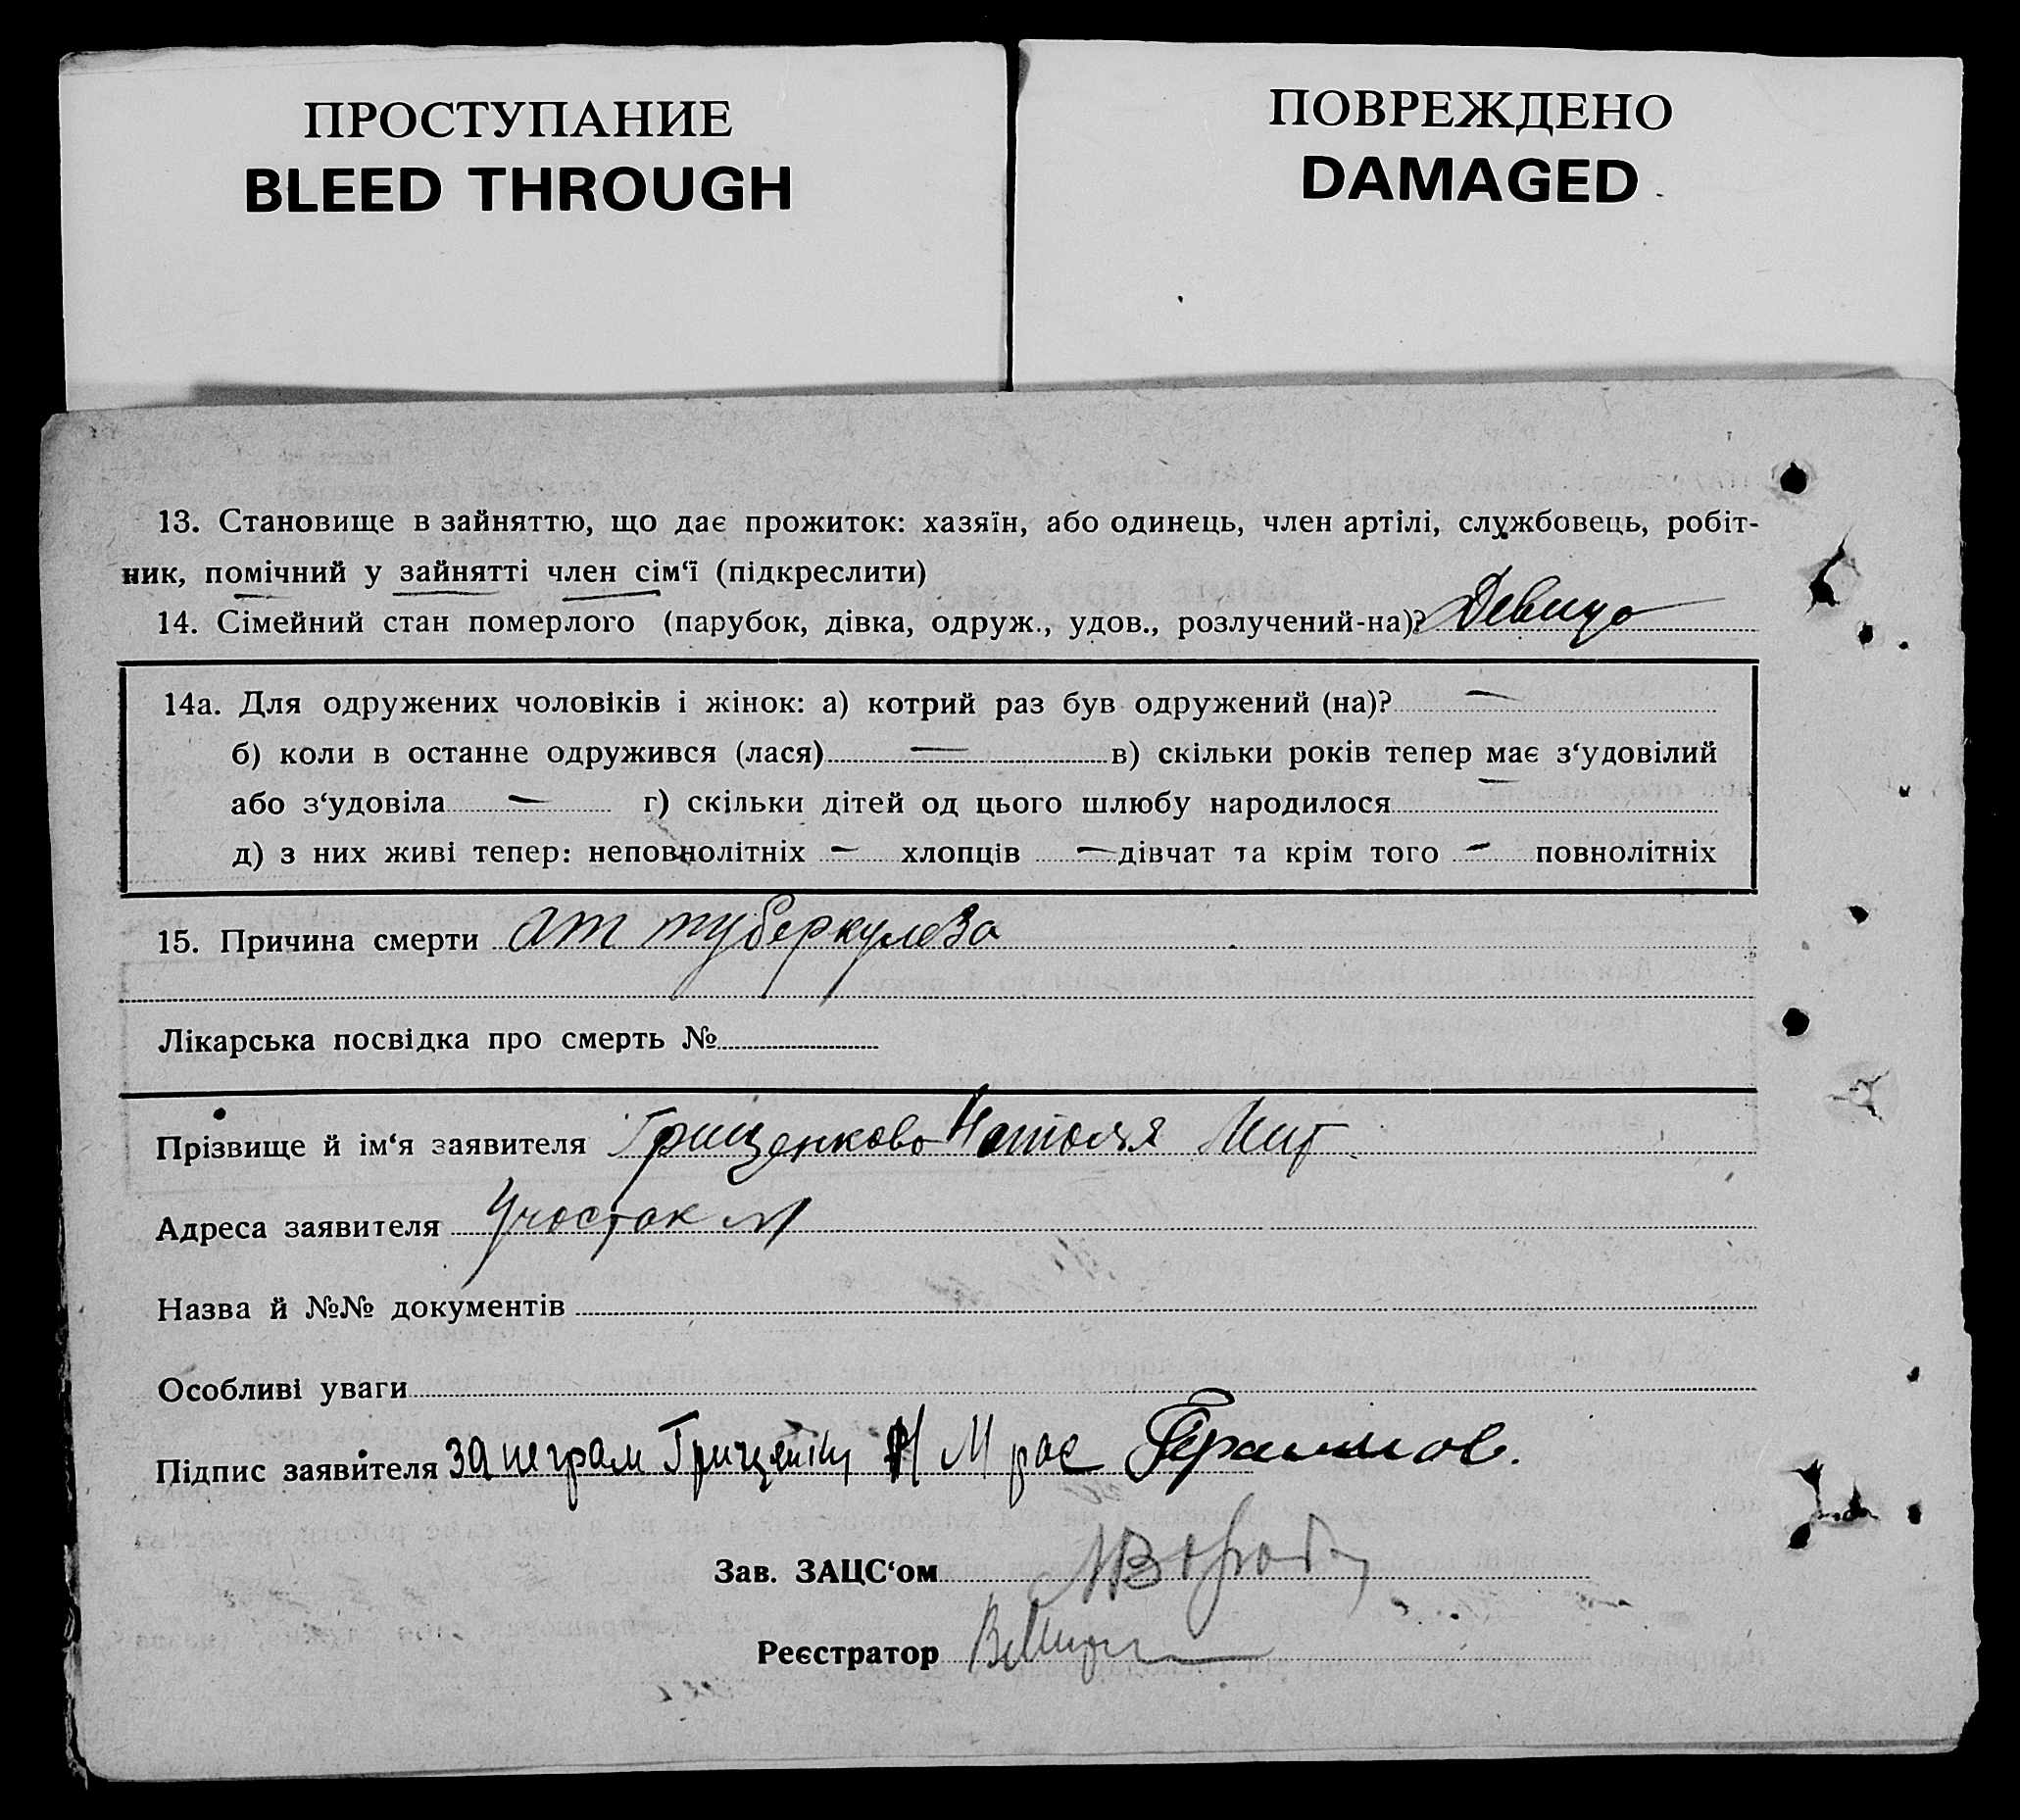 ПРОСТУПАНИЕ
BLEED THROUGH
ПОВРЕЖДЕНО
DAMAGED
13. Становище в зайняттю, що дає прожиток: хазяїн, або одинець, член артілі, службовець, робіт-
ник, помічний у зайнятті член сім‘ї (підкреслити)
14. Сімейний стан померлого (парубок, дівка, одруж., удов., розлучений-на)? Девица
14а. Для одружених чоловіків і жінок: а) котрий раз був одружений (на)? —
б) коли в останне одружився (лася) — в) скільки років тепер має з‘удовілий
або з‘удовіла — г) скільки дітей од цього шлюбу народилося —
д) з них живі тепер: неповнолітніх — хлопців — дівчат та крім того — повнолітніх
15. Причина смерти от туберкулеза
Лікарська посвідка про смерть №
Прізвище й ім‘я заявителя Грищенкова Наталя Мит
Адреса заявителя Участок
Назва й №№ документів
Особливі уваги
Підпис заявителя за неграм Грищенко Н М рос
Зав. ЗАЦС‘ом
Реєстратор